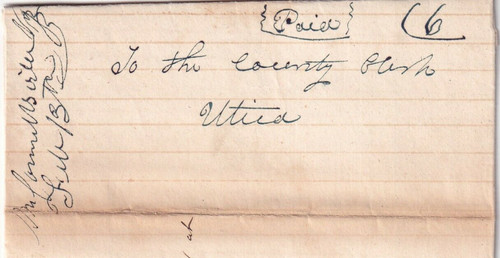 Paid 6
To the County Clerk
Utica
Feb 13th
at